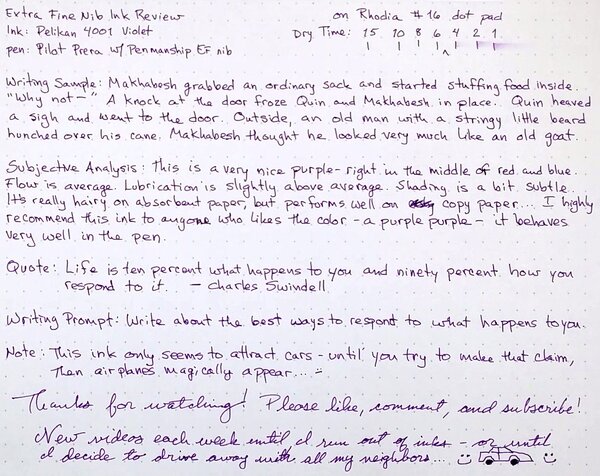 Extra Fine Nib Ink Review on Rhodia #16 dot pad
Ink: Pelikan 4001 Violet Dry Time: 15 10 8 6 4 2 1
pen: Pilot Prera w/ Penmanship EF nib
Writing Sample: Makhabesh grabbed an ordinary sack and started stuffing food inside.
"Why not—" A knock at the door froze Quin and Makhabesh in place. Quin heaved
a sigh and went to the door. Outside, an old man with a stringy little beard
hunched over his cane. Makhabesh thought he looked very much like an old goat.
Subjective Analysis: This is a very nice purple - right in the middle of red and blue.
Flow is average. Lubrication is slightly above average. Shading is a bit subtle.
It's really hairy on absorbent paper, but performs well on copy paper... I highly
recommend this ink to anyone who likes the color - a purple purple - it behaves
very well in the pen.
Quote: Life is ten percent what happens to you and ninety percent how you
respond to it. — Charles Swindell
Writing Prompt: Write about the best ways to respond to what happens to you.
Note: This ink only seems to attract cars - until you try to make that claim,
then airplanes magically appear...
Thanks for watching! Please like, comment, and subscribe!
New videos each week until I run out of inks - or until
I decide to drive away with all my neighbors...